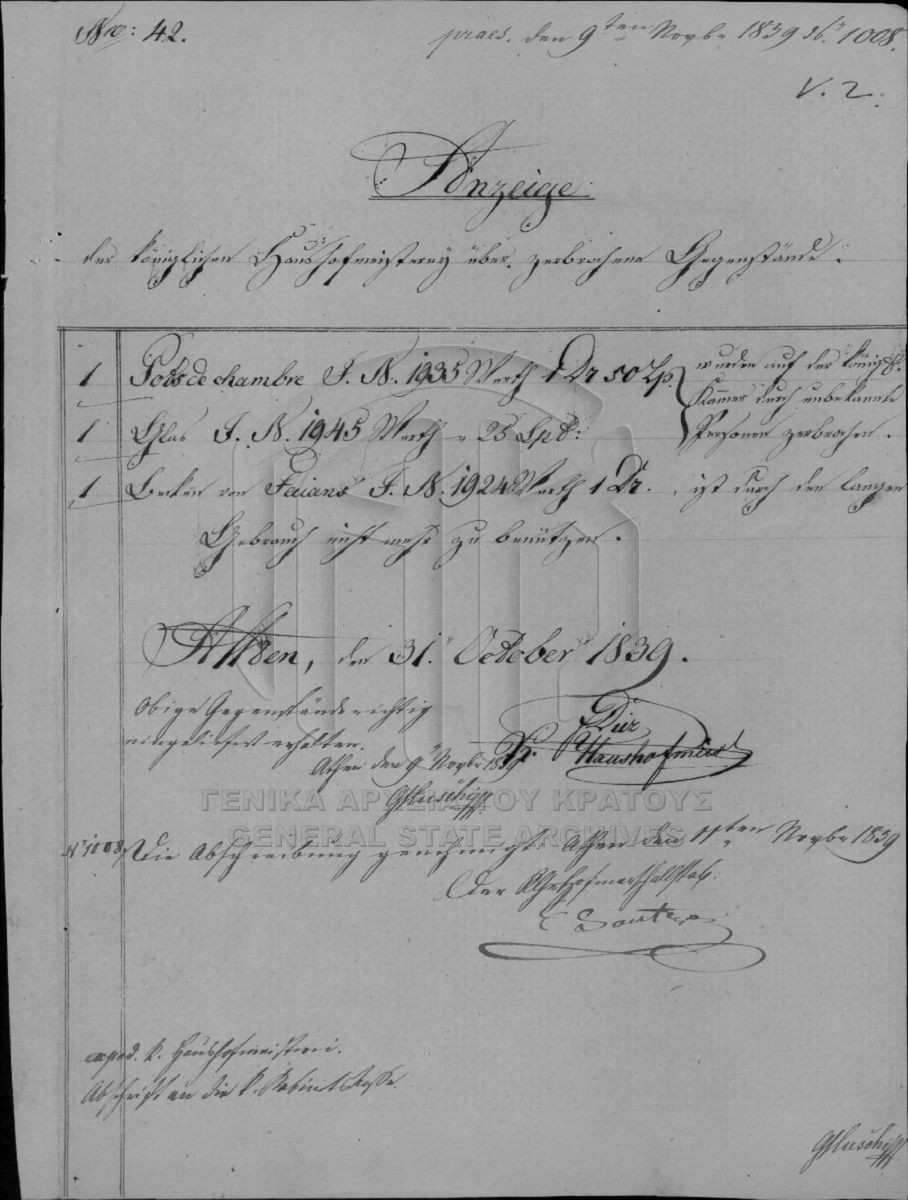 No: 42.
praes. den 9ten Novbr 1839 No 1008.
V. 2.
Anzeige
der königlichen Haushofmeisterey über zerbrochene Gegenstände.
1 Pots de chambre I. N. 1935 Werth 1 Dr 50 Lp. wurden auf der königl.
Kämer durch unbekannte
1 Glas I. N. 1945 Werth „ 25 Lpt: Personen zerbrochen.
1 Becken von Faians I. N. 1924 Werth 1 Dr. ist durch den langen
Gebrauch nicht mehr zu benützen.
Athen, den 31. October 1839.
Obige Gegenstände richtig
eingeliefert erhalten.
Athen den 9 Novbr 1839
Dür
K. Haushofmeister
ΓΕΝΙΚΑ ΑΡΧΕΙΑ ΤΟΥ ΚΡΑΤΟΥΣ
GENERAL STATE ARCHIVES
No 1008 Die Abschreibung genehmigt. Athen den 11ten Novbr 1839
Der Kgl. Hofmarschallstab.
expod. k. Haushofmeisterei.
Abschrift an die k. Kabinetskasse.